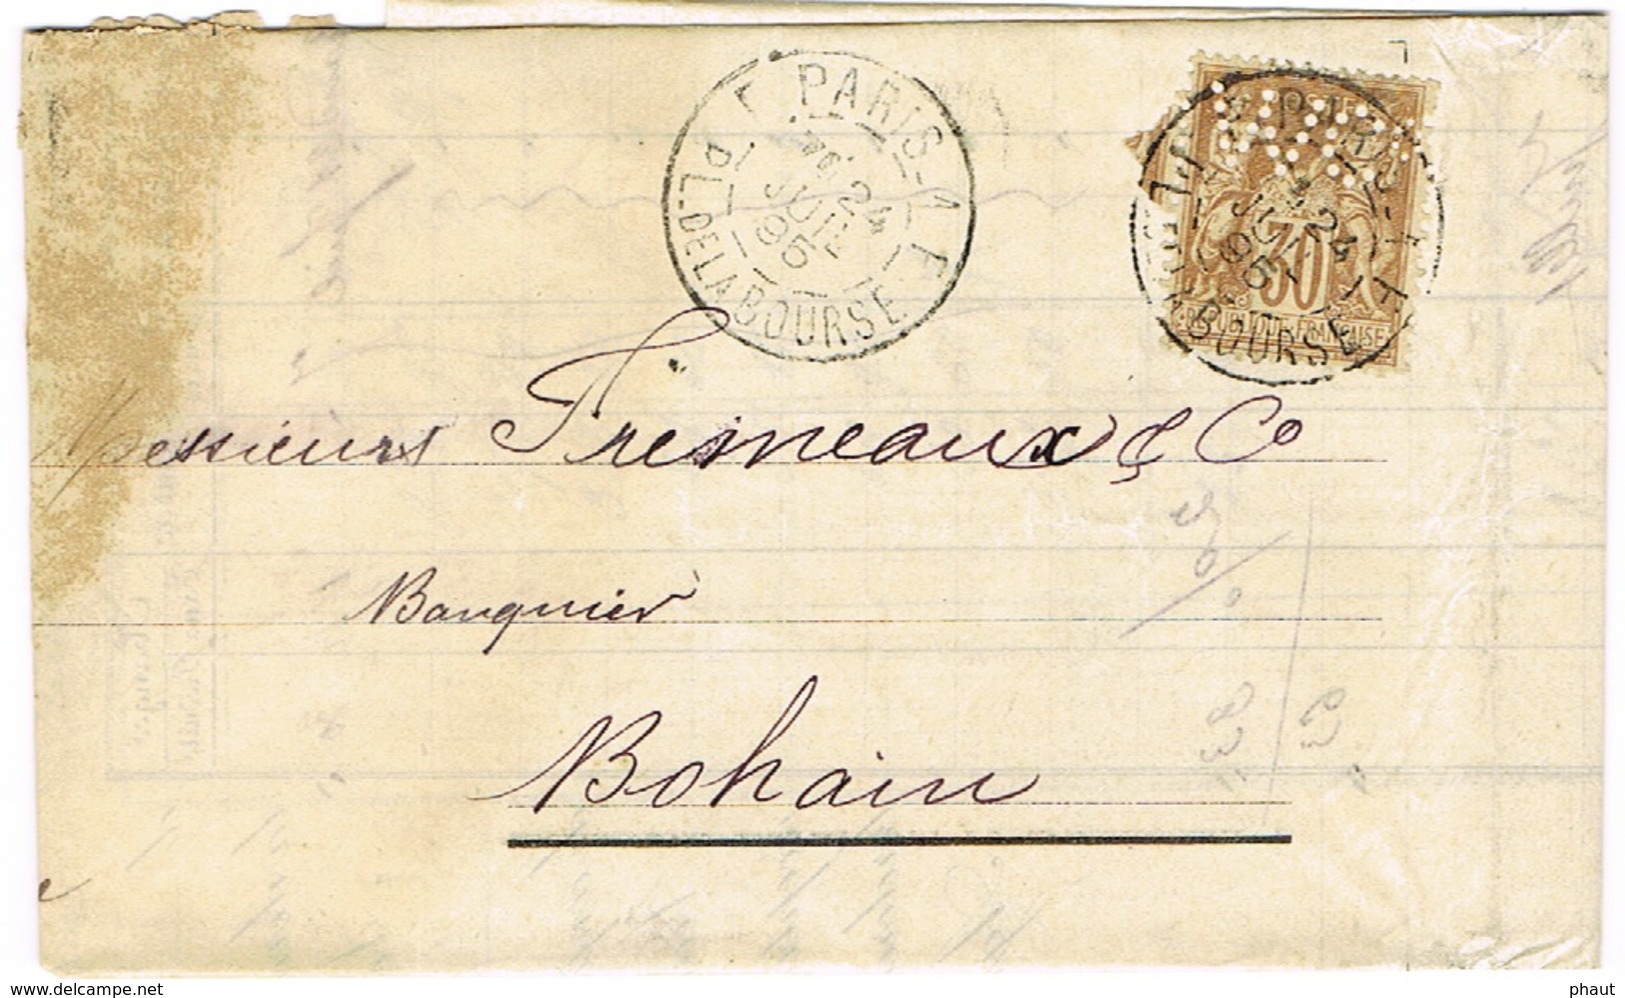 PARIS-1 E
7E 24
JUIL
95
PL. DE LA BOURSE
POSTES
30
REPUBLIQUE FRANÇAISE
PARIS-1 E
24
JUIL
95
PL. DE LA BOURSE
Messieurs Fresneaux & Co
Banquier
Bohain
www.delcampe.net
phaut